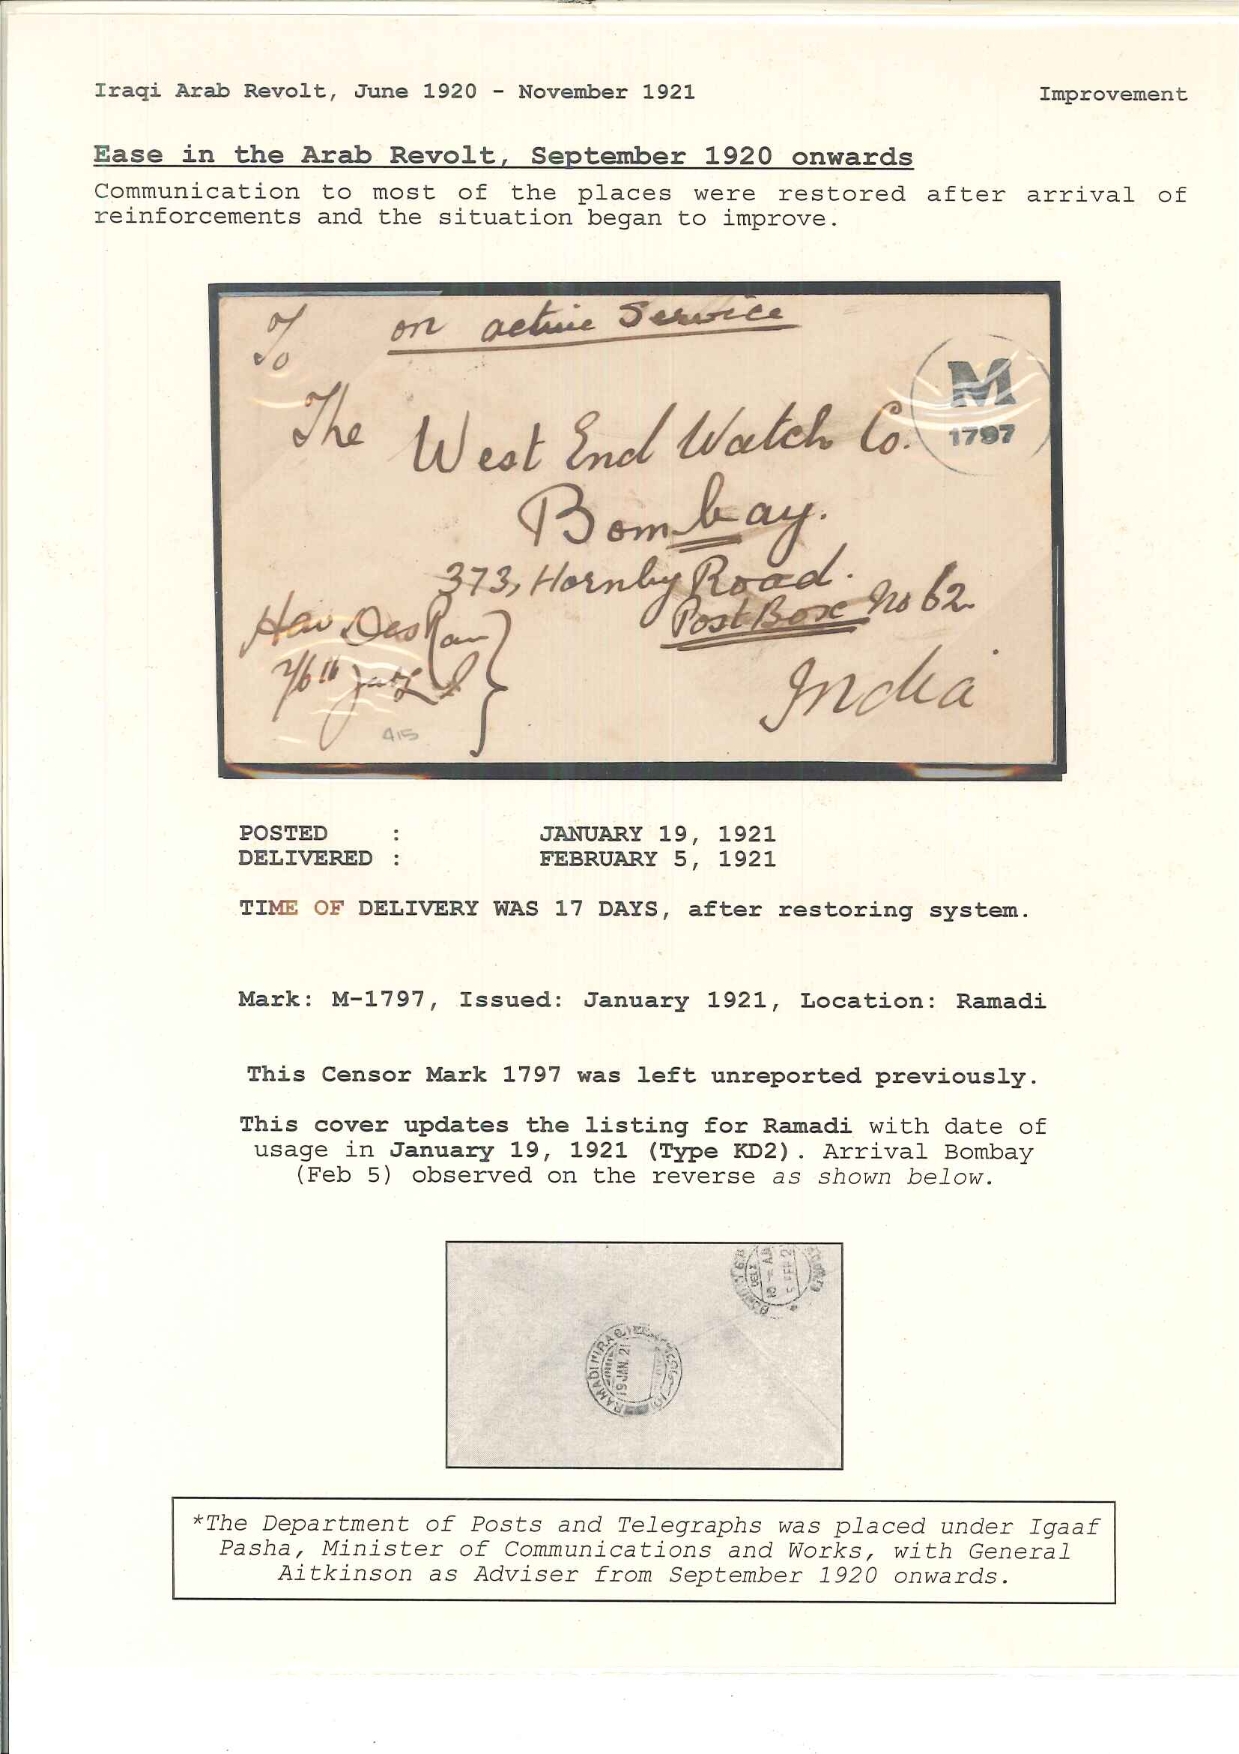 Iraqi Arab Revolt, June 1920 - November 1921
Improvement
Ease in the Arab Revolt, September 1920 onwards
Communication to most of the places were restored after arrival of
reinforcements and the situation began to improve.
To on active Service
The West End Watch Co.
M
1797
Bombay.
373, Hornby Road.
Post Box No 62
India
Hav Das Ram
2/6th Jat L I
415
POSTED : JANUARY 19, 1921
DELIVERED : FEBRUARY 5, 1921
TIME OF DELIVERY WAS 17 DAYS, after restoring system.
Mark: M-1797, Issued: January 1921, Location: Ramadi
This Censor Mark 1797 was left unreported previously.
This cover updates the listing for Ramadi with date of
usage in January 19, 1921 (Type KD2). Arrival Bombay
(Feb 5) observed on the reverse as shown below.
5 FEB 2
RAMADI
19 JAN. 21
*The Department of Posts and Telegraphs was placed under Igaaf
Pasha, Minister of Communications and Works, with General
Aitkinson as Adviser from September 1920 onwards.